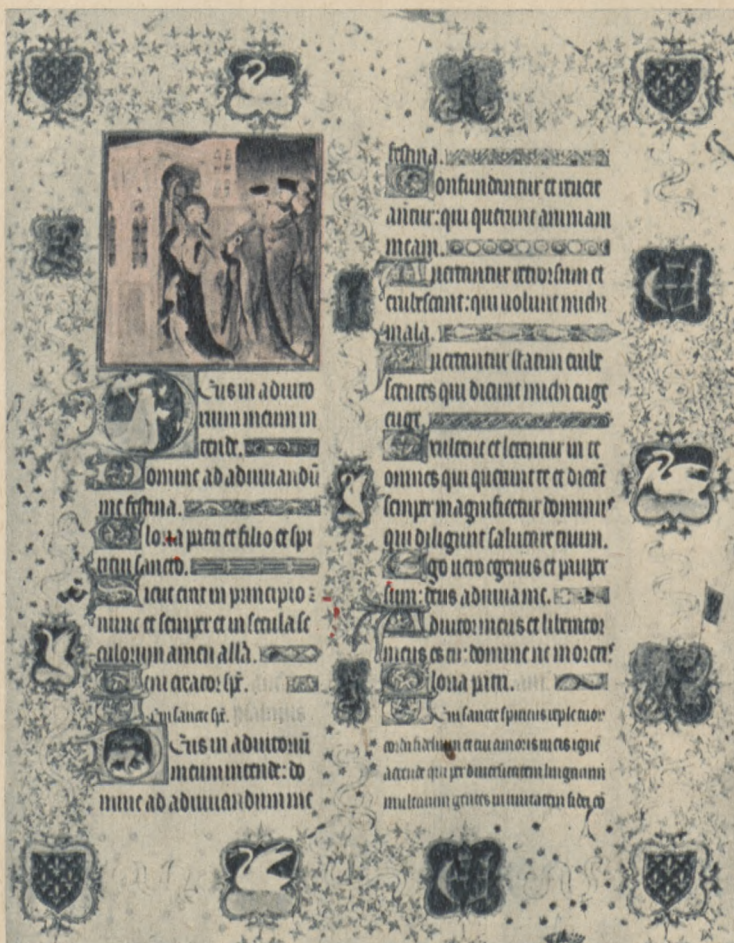 Eus in adiuto
rium meum in
tende.
Domine ad adiuuandū
me festina.
Gloria patri et filio et spi
ritui sancto.
Sicut erat in principio
nunc et semper et in secula se
culorum amen allā.
Ueni creator spē.
Ueni sancte spē.
Deus in adiutoriū
meum intende: do
mine ad adiuuandum me
festina.
Confundantur et reuere
antur: qui querunt animam
meam.
Auertantur retrorsum et
erubescant: qui uolunt michi
mala.
Auertantur statim erube
scentes qui dicunt michi euge
euge.
Exultent et letentur in te
omnes qui querunt te et dicāt
semper magnificetur dominus
qui diligunt salutare tuum.
Ego uero egenus et pauper
sum: deus adiuua me.
Adiutor meus et liberator
meus es tu: domine ne moreris
Gloria patri.
Ueni sancte spiritus reple tuor
corda fidelium et tui amoris in eis ignē
accende qui per diuersitatem linguarum
multarum gentes in unitatem fidei cō